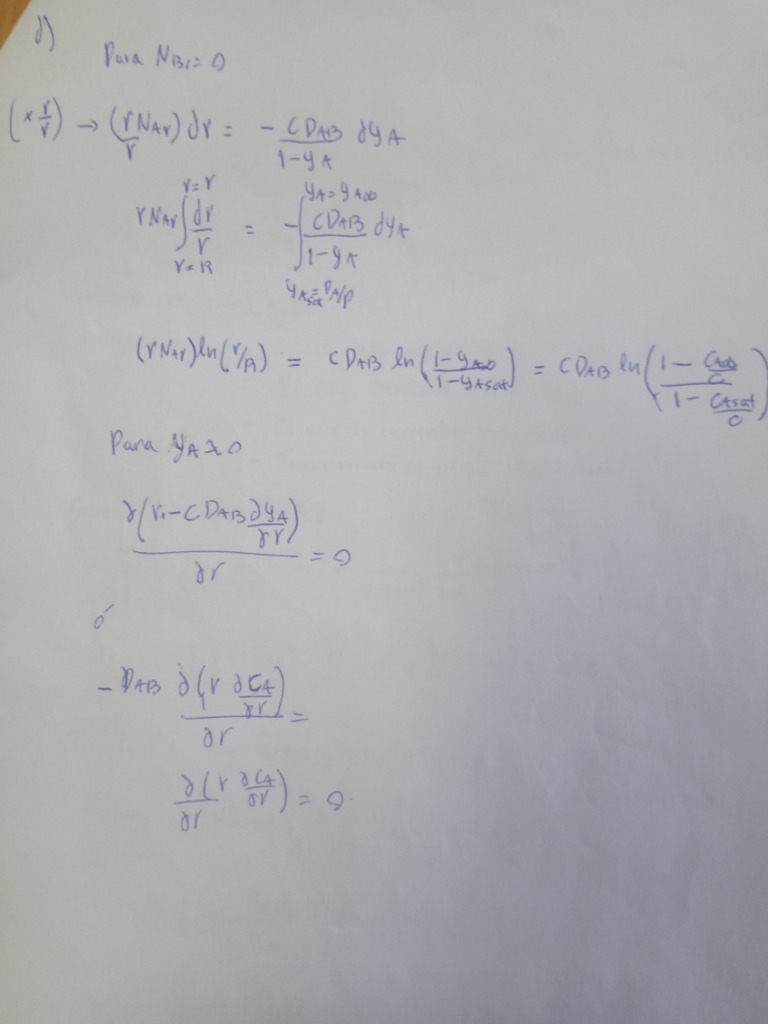 d)
Para N_Br = 0
(× r/r) → (rN_Ar)/r dr = - CD_AB/(1-y_A) dy_A
rN_Ar ∫_{r=R}^{r=r} dr/r = - ∫_{y_Asat=P_A/P}^{y_A=y_A∞} CD_AB/(1-y_A) dy_A
(rN_Ar) ln(r/R) = CD_AB ln((1-y_A∞)/(1-y_Asat)) = CD_AB ln((1 - C_A∞/C)/(1 - C_Asat/C))
Para y_A ≈ 0
∂(r·-CD_AB ∂y_A/∂r)/∂r = 0
ó
- D_AB ∂(r ∂C_A/∂r)/∂r =
∂/∂r (r ∂C_A/∂r) = 0